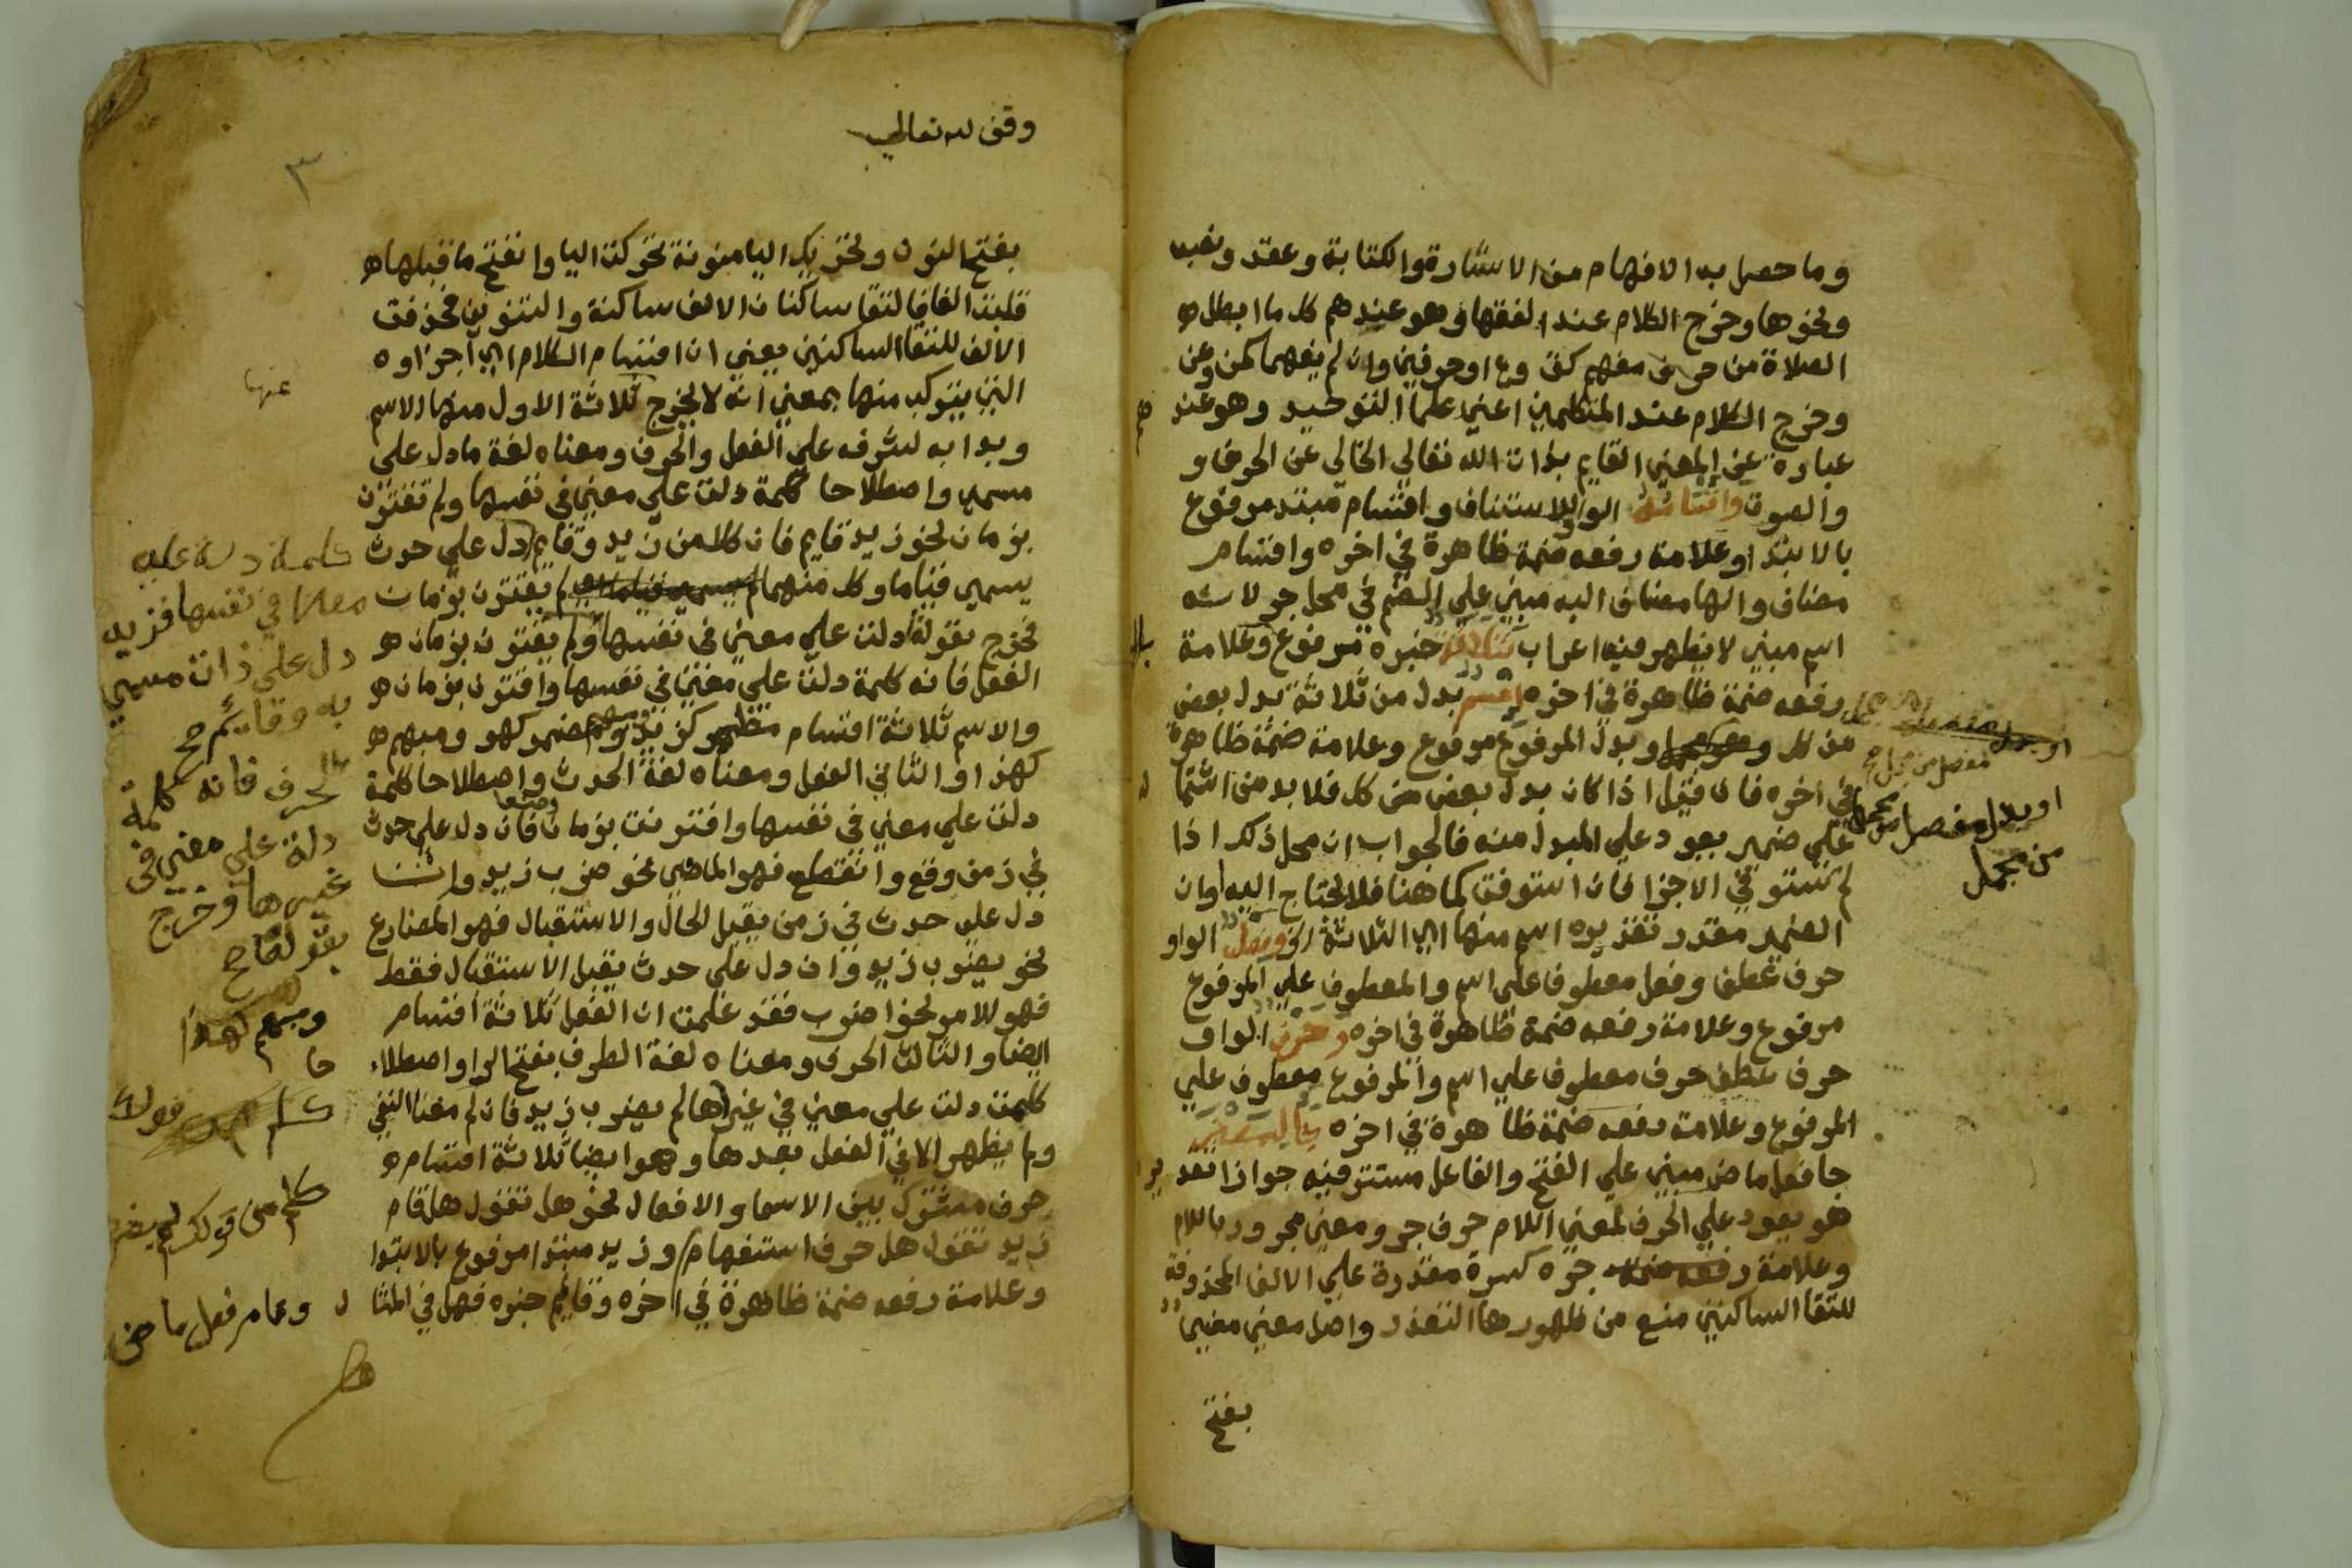 وما حصل به الافهام من الاشارة والكتابة وعقد ونصب
ونحوها وخرج الكلام عند الفقها وهو عندهم كل ما ابطل
الصلاة من حرف مفهم كق وع او حرفين وان لم يفهما كمن وعن
وخرج الكلام عند المتكلمين اعني علما التوحيد وهو عند هم
عبارة عن المعني القايم بذات الله تعالي الخالي عن الحرف و
والصوت واقسامه الواو للاستئناف واقسام مبتد مرفوع
بالابتدا وعلامة رفعه ضمة ظاهرة في اخره واقسام
مضاف والها مضاف اليه مبني علي الضم في محل جر لانه
اسم مبني لا يظهر فيه اعراب ثلاثة خبره مرفوع بال
وعلامة
رفعه ضمة ظاهرة في اخره اسم بدل من ثلاثة بدل بعض
من كل وبدل المرفوع مرفوع وعلامة ضمة ظاهرة
في اخره فان قيل اذا كان بدل بعض من كل فلا بد من اشتما ل
علي ضمير يعود علي المبدل منه فالجواب ان محل ذلك اذا
لم تستوفي الاجزا فان استوفت كما هنا فلا يحتاج اليه اوان
الضمير مقدر تقديره اسم منها اي الثلاثة الخ وفعل الواو
حرف عطف وفعل معطوف علي اسم والمعطوف علي المرفوع
مرفوع وعلامة رفعه ضمة ظاهرة في اخره وحرف الواو
حرف عطف حرف معطوف علي اسم والمرفوع معطوف علي
المرفوع وعلامة رفعه ضمة ظاهرة في اخره جا لمعني
جا فعل ماض مبني علي الفتح والفاعل مستتر فيه جوازا تقد ير
هو يعود علي الحرف لمعني اللام حرف جر ومعني مجرور باللام
وعلامة جره كسرة مقدرة علي الالف المحذوفة
للتقا الساكنين منع من ظهورها التعذر واصل معني معني
بفتح
مفصل من مجمل صح
او بدل مفصل من مجمل
من مجمل
وقف لله تعالي
٣
بفتح النون وتحريك اليا منونة تحركت اليا وانفتح ما قبلها
قلبت الفا فالتقا ساكنان الالف ساكنة والتنوين فحذفت
الالف للتقا الساكنين يعني ان اقسام الكلام اي اجزاوه
التي يتركب منها بمعني انه لا يخرج عنها ثلاثة الاول منها الاسم
وبدا به لشرفه علي الفعل والحرف ومعناه لغة ما دل علي
مسمي واصطلاحا كلمة دلت علي معني في نفسها ولم تقترن
بزمان نحو زيد قايم فان كلا من زيد وقايم دل علي حدث
يسمي قياما وكل منهما لم يقترن بزمان
فخرج بقوله دلت علي معني في نفسها ولم يقترن بزمان
الفعل فانه كلمة دلت علي معني في نفسها واقترن بزمان
والاسم ثلاثة اقسام مظهر كزيد ومضمر كهو ومبهم
كهذا والثاني الفعل ومعناه لغة الحدث واصطلاحا كلمة
دلت علي معني في نفسها واقترنت بزمان وضعا فان دل علي حدث
في زمن وقع وانقطع فهو الماضي نحو ضرب زيد وان
دل علي حدث في زمن يقبل الحال والاستقبال فهو المضارع
نحو يضرب زيد وان دل علي حدث يقبل الاستقبال فقط
فهو الامر نحو اضرب فقد علمت ان الفعل ثلاثة اقسام
ايضا والثالث الحرف ومعناه لغة الطرف بفتح الرا واصطلا حا
كلمت دلت علي معني في غيرها لم يضرب زيد فان لم معنا النفي
ولم يظهر الا في الفعل بعدها وهو ايضا ثلاثة اقسام
حرف مشترك بين الاسما والافعال نحو هل تقول هل قام
زيد تقول هل حرف استفهام وزيد مبتدا مرفوع بالابتدا
وعلامة رفعه ضمة ظاهرة في اخره وقايم خبره فهل في المثا ل
كلمة دلة علي
معنا في نفسها فزيد
دل علي ذات مسمي
به وقايم صح
الحرف فانه كلمة
دلة علي معني في
غيرها وخرج
بقولنا صح
ومبهم كهذا
كلم من قولك لم يضرب
وقام فعل ماض